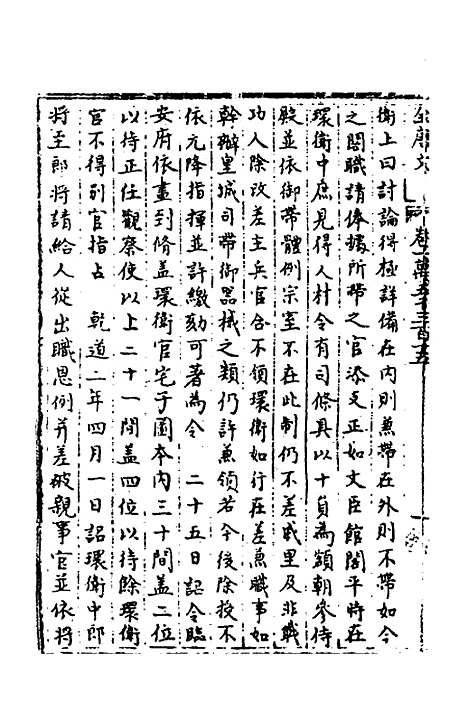 全唐文 卷一萬五千三百十五
衛上曰討論得極詳備在內則兼帶在外則不帶如今
之閤職請俸據所帶之官添支正如文臣館閣平時在
環衛中庶見得人材令有司條具以十員為額朝參侍
殿並依御帶體例宗室不在此制仍不差戚里及非戰
功人除改差主兵官合不領環衛如行在差兼職事如
幹辦皇城司帶御器械之類仍許兼領若今後除授不
依元降指揮並許繳駮可著為令 二十五日詔令臨
安府依畫到修蓋環衛官宅于圖本內三十間蓋二位
以待正任觀察使以上二十一間蓋四位以待餘環衛
官不得別官指占 乾道二年四月一日詔環衛中郎
將至郎將請給人從出職恩例并差破親事官並依將